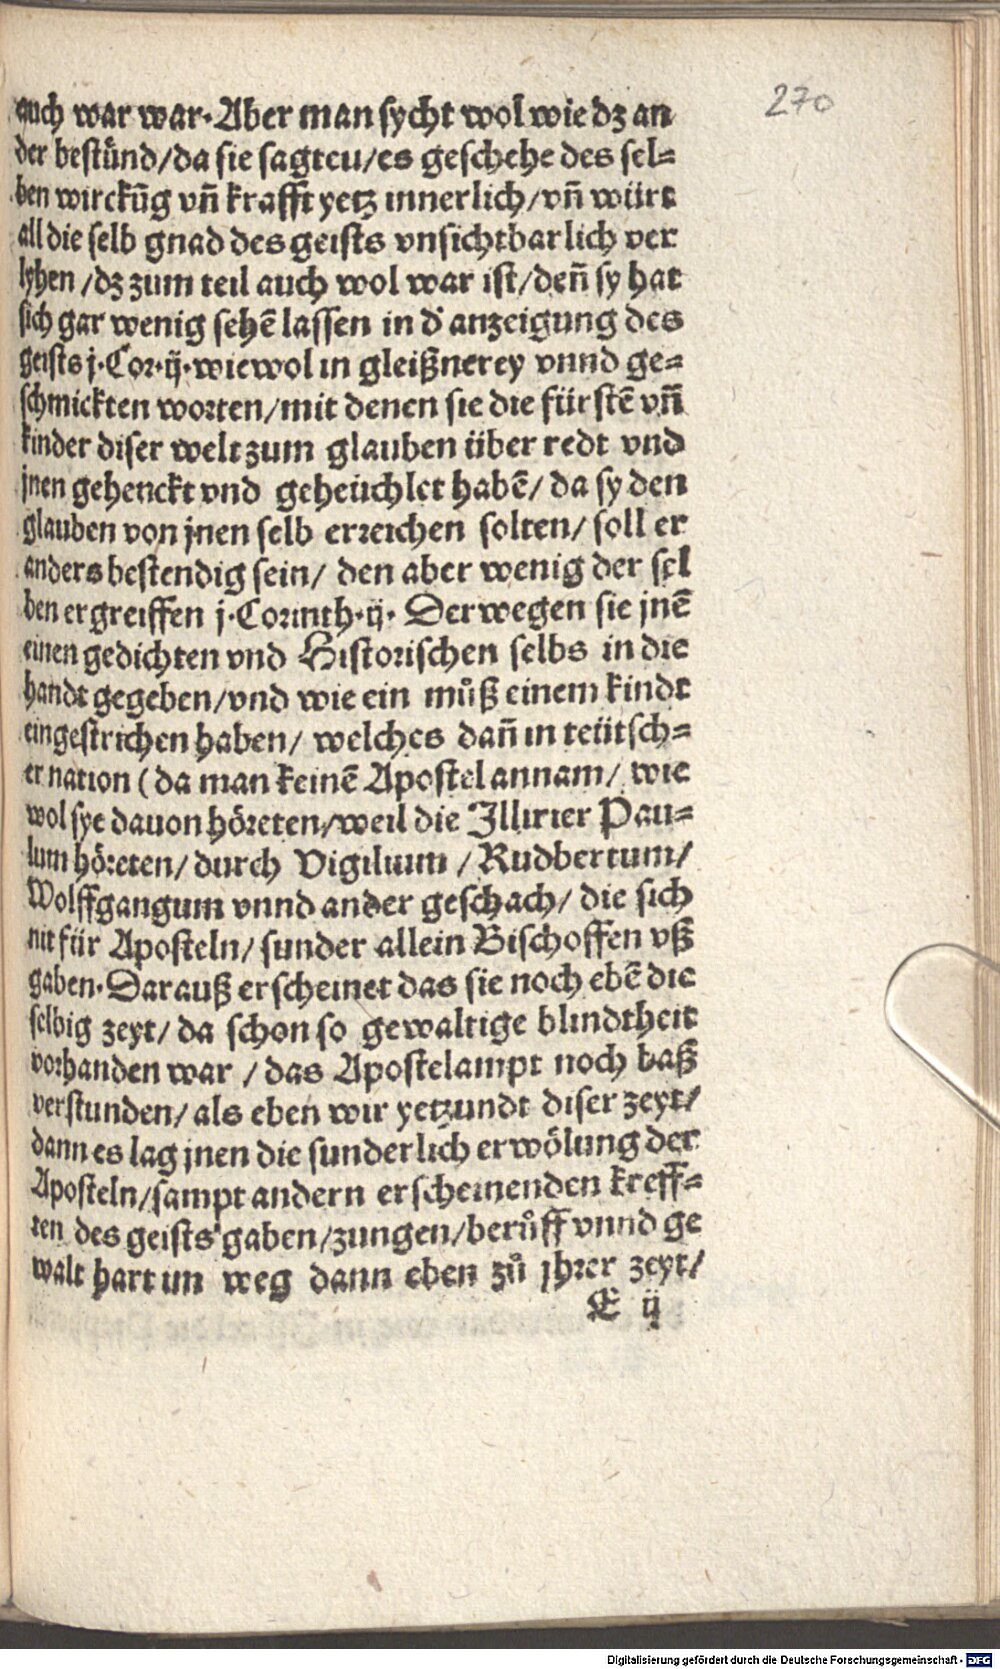 270
auch war war. Aber man sycht wol wie dz an
der bestünd/da sie sagteu/es geschehe des sel=
ben wirckūg vñ krafft yetz innerlich/vñ würt
all die selb gnad des geists vnsichtbarlich ver
lyhen /dz zum teil auch wol war ist/deñ sy hat
sich gar wenig sehē lassen in d' anzeigung des
geists j. Cor. ij. wiewol in gleißnerey vnnd ge=
schmickten worten/mit denen sie die fürstē vñ
kinder diser welt zum glauben über redt vnd
jnen gehenckt vnd geheüchlet habē/ da sy den
glauben von jnen selb erreichen solten/ soll er
anders bestendig sein/ den aber wenig der sel
ben ergreiffen j. Corinth. ij. Derwegen sie jnē
einen gedichten vnd Historischen selbs in die
handt gegeben/vnd wie ein můß einem kindt
eingestrichen haben/ welches dañ in teütsch=
er nation (da man keinē Apostel annam/ wie
wol sye dauon höreten/weil die Illirier Pau=
lum höreten/ durch Vigilium /Rudbertum/
Wolffgangum vnnd ander geschach/ die sich
nit für Aposteln/ sunder allein Bischoffen vß
gaben. Darauß erscheinet das sie noch ebē die
selbig zeyt/ da schon so gewaltige blindtheit
vorhanden war / das Apostelampt noch baß
verstunden/ als eben wir yetzundt diser zeyt/
dann es lag jnen die sunderlich erwölung der
Aposteln/sampt andern erscheinenden kreff=
ten des geists gaben/zungen/berůff vnnd ge
walt hart im weg dann eben zů jhrer zeyt/
E ij
Digitalisierung gefördert durch die Deutsche Forschungsgemeinschaft - DFG